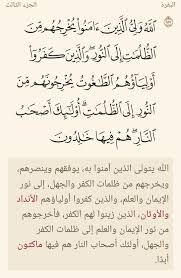 البقرة
الجزء الثالث
ٱللَّهُ وَلِيُّ ٱلَّذِينَ ءَامَنُوا۟ يُخْرِجُهُم مِّنَ
ٱلظُّلُمَٰتِ إِلَى ٱلنُّورِ ۖ وَٱلَّذِينَ كَفَرُوٓا۟
أَوْلِيَآؤُهُمُ ٱلطَّٰغُوتُ يُخْرِجُونَهُم مِّنَ
ٱلنُّورِ إِلَى ٱلظُّلُمَٰتِ ۗ أُو۟لَٰٓئِكَ أَصْحَٰبُ
ٱلنَّارِ ۖ هُمْ فِيهَا خَٰلِدُونَ
الله يتولى الذين آمنوا به، يوفقهم وينصرهم،
ويخرجهم من ظلمات الكفر والجهل، إلى نور
الإيمان والعلم، والذين كفروا أولياؤهم الأنداد
والأوثان، الذين زينوا لهم الكفر، فأخرجوهم
من نور الإيمان والعلم إلى ظلمات الكفر
والجهل، أولئك أصحاب النار هم فيها ماكثون
أبدًا.